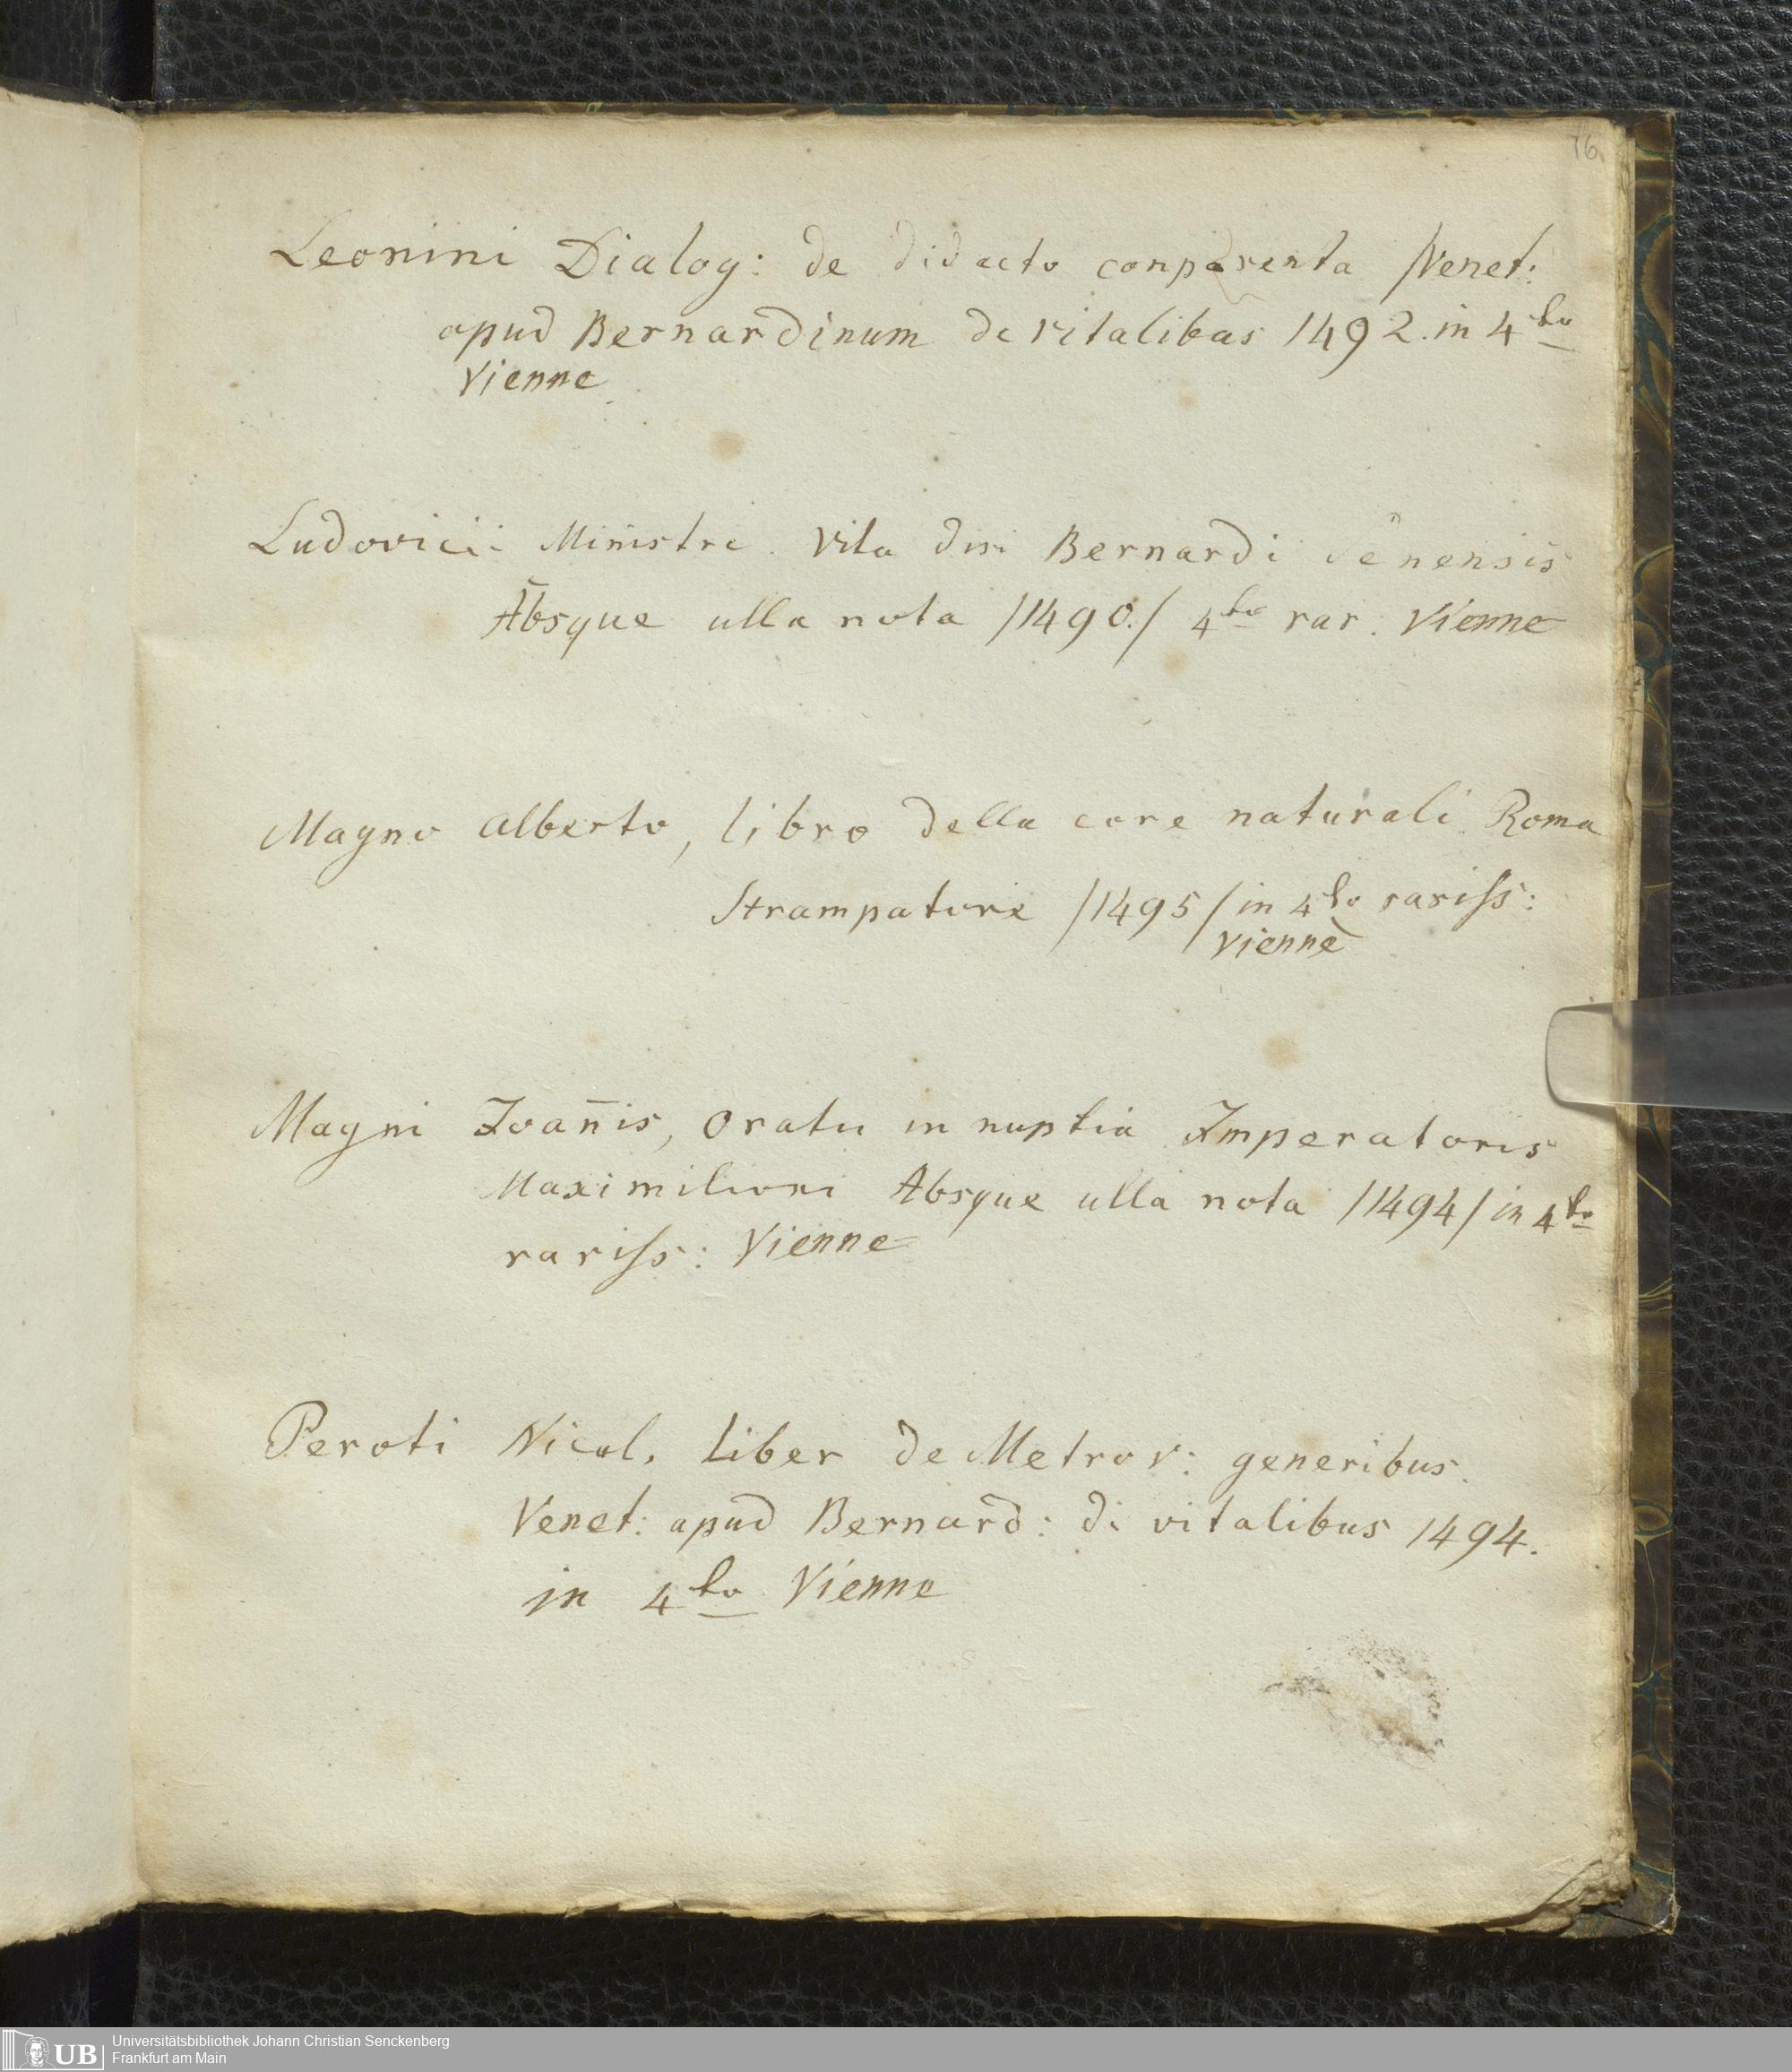 76
Leonini Dialog: de didacto conparenta /Venet:
apud Bernardinum de vitalibas 1492. in 4to
Vienne
Ludovici: Ministri. Vita divi Bernardi Senensis
Absque ulla nota /1490./ 4to rar: Vienne
Magno Alberto, libro della core naturali Roma
Strampatore /1495/ in 4to rariss:
Vienne
Magni Joan̄is, Oratu in nuptia Imperatoris
Maximiliani Absque ulla nota /1494/ in 4to
rariss: Vienne
Peroti Nicol. Liber de Metror: generibus.
Venet: apud Bernard: di vitalibus 1494.
in 4to Vienne
UB
Universitätsbibliothek Johann Christian Senckenberg
Frankfurt am Main